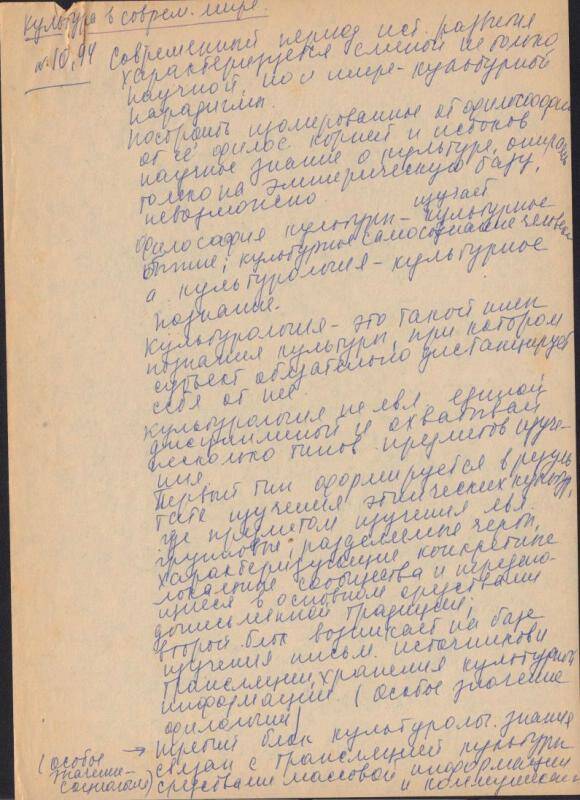 Культура в соврем. мире.
№ 10, 94
Современный период ист. развития
характеризуется сменой не только
научной, но и мире-культурной
парадигмы.
Построить изолированное от философии
от её филос. корней и истоков
научное знание о культуре, опираясь
только на эмпирическую базу,
невозможно.
Философия культуры – изучает культурное
бытие, культурное самосознание человека
а культурология – культурное
познание.
Культурология – это такой тип
познания культуры, при котором
субъект обязательно дистанцирует
себя от неё
Культурология не явл. единой
дисциплиной и охватывает
несколько типов предметов изуче-
ния.
Первый тип формируется в резуль
тате изучения этнических культур,
где предметом изучения явл.
групповые, разделяемые черты,
характеризующие конкретные
локальные сообщества и передаю-
щиеся в основном средствами
дописьменной традиции;
второй блок возникает на базе
изучения письм. источников
трансляции, хранения культурной
информации. (особое значение
филологии)
(особое
значение –
социологии)
→ третий блок культуролог. знания
связан с трансляцией культуры
средствами массовой информации
и коммуникации